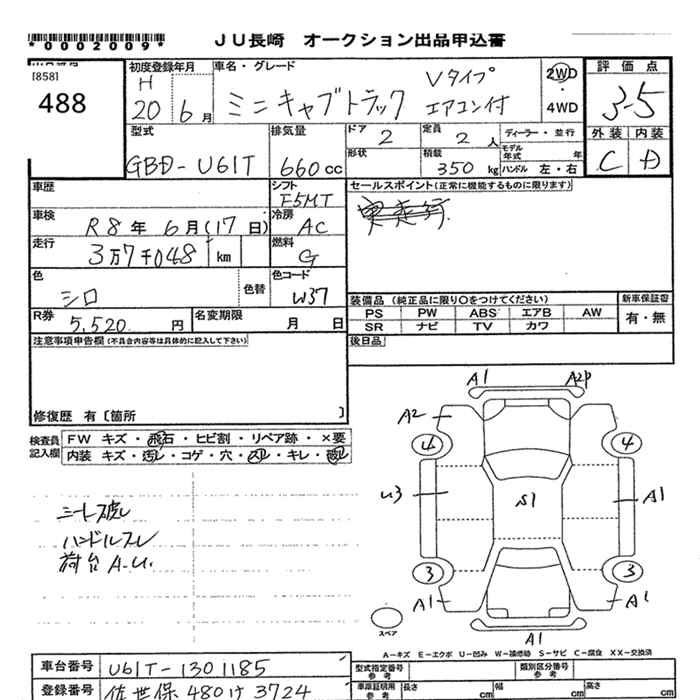 *0002009*
ＪＵ長崎 オークション出品申込書
[858]
488
初度登録年月
H
20 6月
車名・グレード
ミニキャブトラック
Vタイプ
エアコン付
2WD
・
4WD
評価点
3.5
外装 内装
C D
型式
GBD-U61T
排気量
660cc
ドア
2
定員
2人
ディーラー・並行
形状
積載
350kg
モデル年式 年
ハンドル 左・右
車歴
シフト
F5MT
セールスポイント(正常に機能するものに限ります)
実走行
車検
R8年6月(17日)
冷房
AC
走行
3万7千048 km
燃料
G
色
シロ
色替
色コード
W37
装備品 (純正品に限り○をつけてください)
新車保証書
PS PW ABS エアB AW
有・無
SR ナビ TV カワ
R券
5,520円
名変期限
月 日
後日品
注意事項申告欄(不具合内容等は具体的に記入して下さい)
修復歴 有〔箇所 〕
検査員記入欄
FW キズ・飛石・ヒビ割・リペア跡・×要
内装 キズ・汚レ・コゲ・穴・スレ・キレ・破レ
シート破レ
ハンドルスレ
荷台 A.U.
A1 A2P
A2
4 4
U3 S1 A1
3 3
A1 A1
A1
スペア
A－キズ E－エクボ U－凹み W－補修跡 S－サビ C－腐食 XX－交換済
車台番号
U61T-1301185
登録番号
佐世保 480け3724
型式指定番号
参考
類別区分番号
参考
車庫証明用
参考
長さ cm
幅 cm
高さ cm